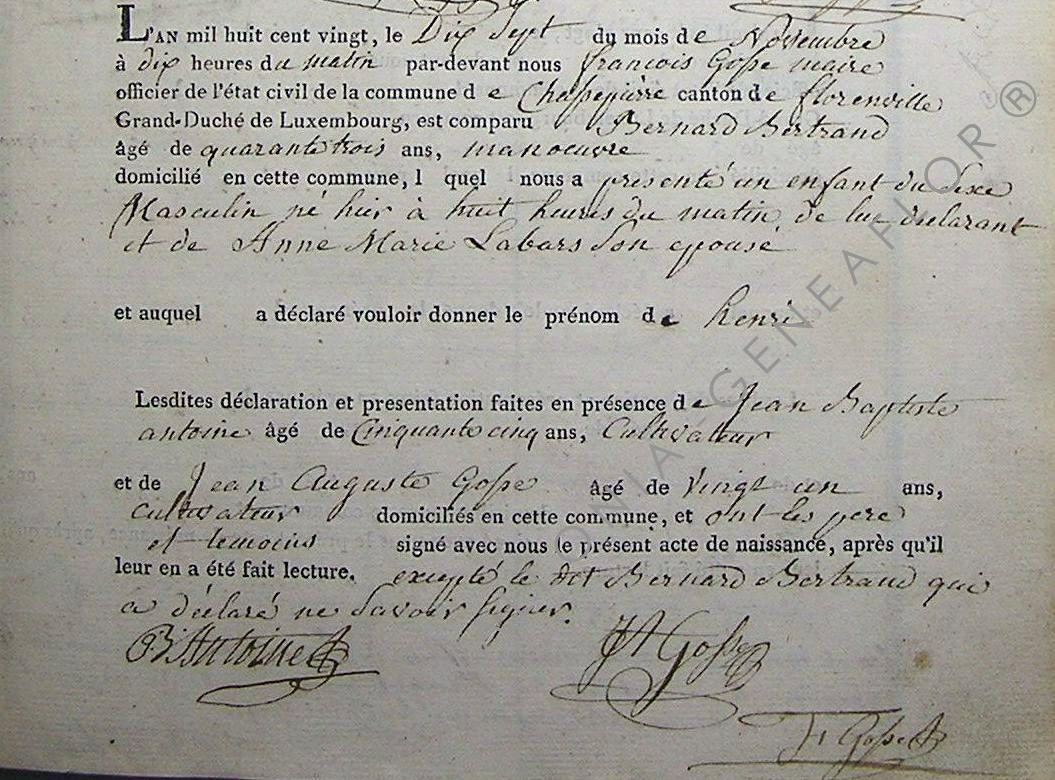 L'AN mil huit cent vingt, le Dix Sept du mois de Novembre
à dix heures du matin par-devant nous françois Gosse maire
officier de l'état civil de la commune de Chassepierre canton de florenville
Grand-Duché de Luxembourg, est comparu Bernard Bertrand
âgé de quarante trois ans, manoeuvre
domicilié en cette commune, l quel nous a presenté un enfant du Sexe
Masculin né hier à huit heures du matin de lui déclarant
et de Anne Marie Labars Son epouse
et auquel a déclaré vouloir donner le prénom de henri
Lesdites déclaration et presentation faites en présence de Jean Baptiste
antoine âgé de Cinquante cinq ans, Cultivateur
et de Jean Auguste Gosse âgé de Vingt un ans,
Cultivateur domiciliés en cette commune, et ont les pere
et temoins signé avec nous le présent acte de naissance, après qu'il
leur en a été fait lecture. excepté le dit Bernard Bertrand qui
a déclaré ne Savoir signer.
B Antoine JA Gosse
F Gosse
GENEAFLOR®